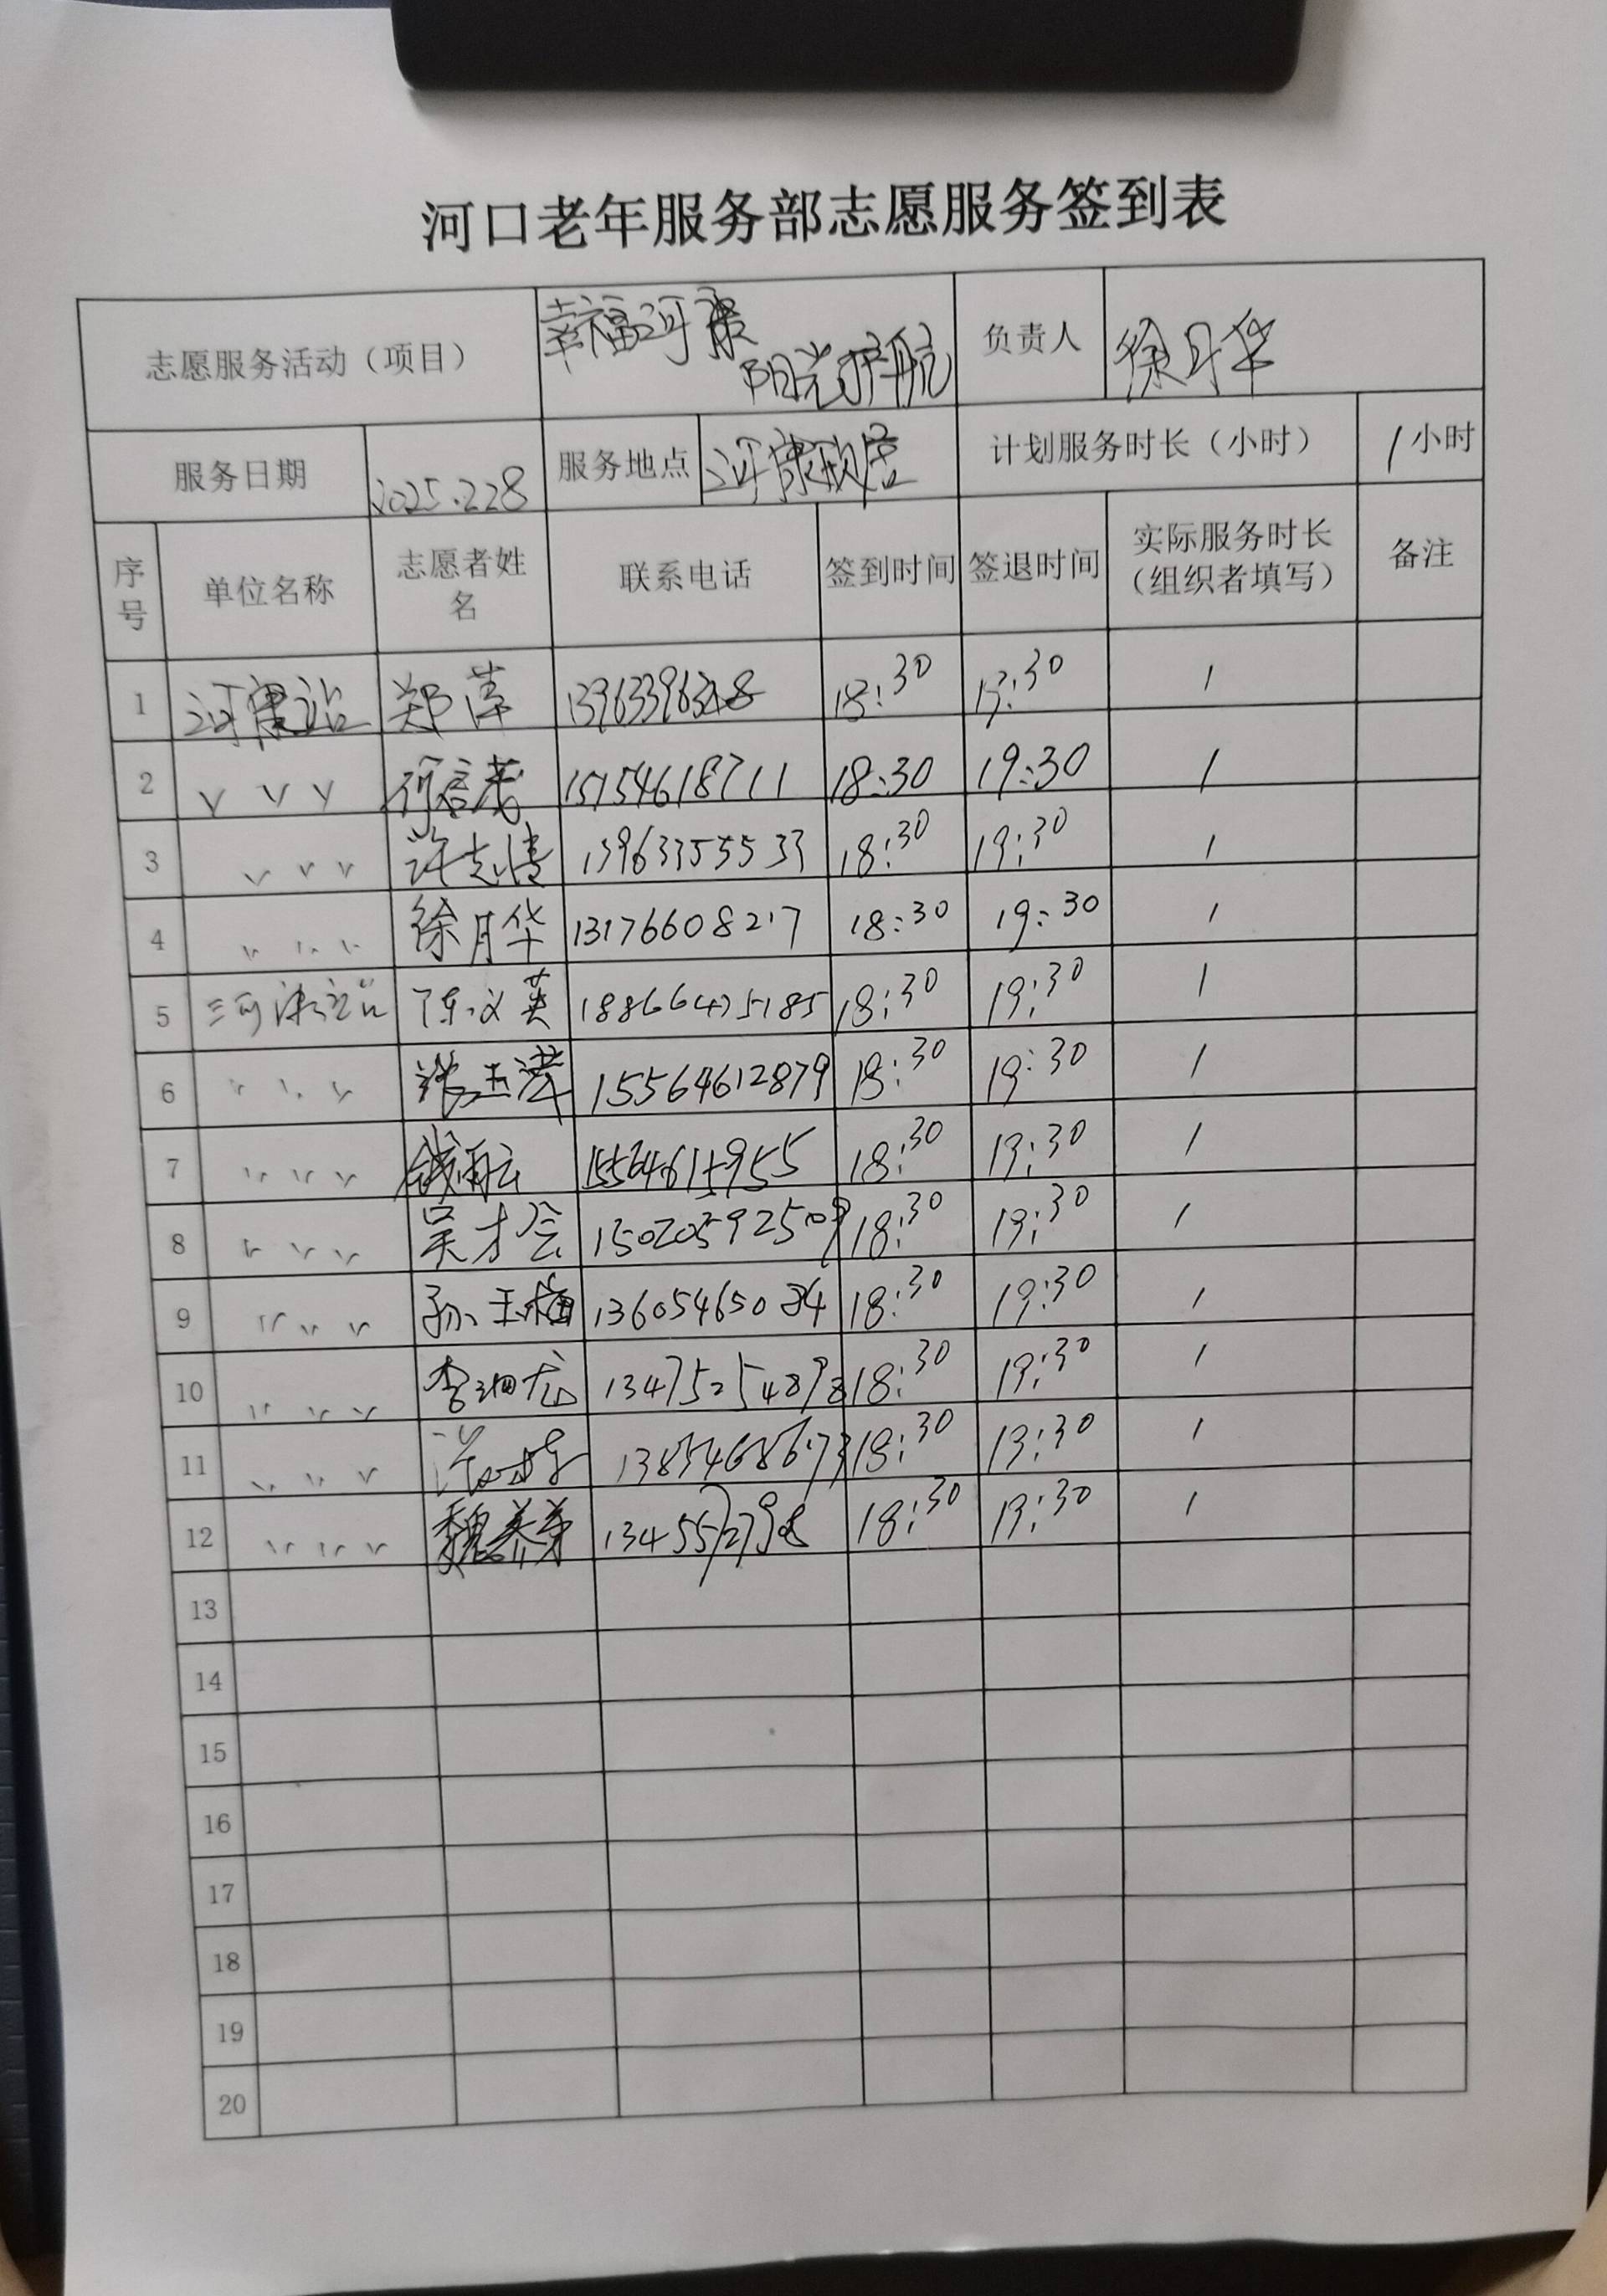 河口老年服务部志愿服务签到表
志愿服务活动（项目） 幸福河康 阳光护航 负责人 徐月华
服务日期 2025.2.28 服务地点 河康 计划服务时长（小时） 1小时
序号 单位名称 志愿者姓名 联系电话 签到时间 签退时间 实际服务时长（组织者填写） 备注
1 河康站 郑萍 18:30 19:30 1
2 〃 〃 〃 15154618711 18:30 19:30 1
3 〃 〃 〃 许志清 13963355533 18:30 19:30 1
4 〃 〃 〃 徐月华 13176608217 18:30 19:30 1
5 陈义英 18866475185 18:30 19:30 1
6 〃 〃 〃 张玉 15564612879 18:30 19:30 1
7 〃 〃 〃 钱 15564615955 18:30 19:30 1
8 〃 〃 〃 吴才会 15020592509 18:30 19:30 1
9 〃 〃 〃 孙玉梅 18:30 19:30 1
10 〃 〃 〃 李 13475254898 18:30 19:30 1
11 〃 〃 〃 13854686173 18:30 19:30 1
12 〃 〃 〃 魏 18:30 19:30 1
13
14
15
16
17
18
19
20